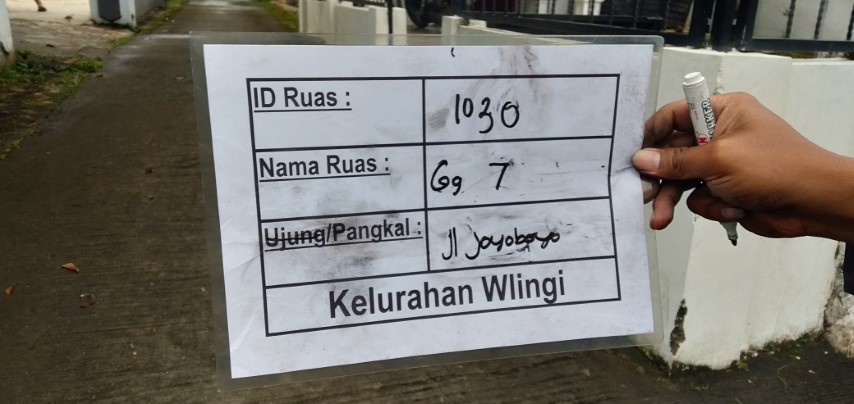 ID Ruas : 1030
Nama Ruas : Gg 7
Ujung/Pangkal : Jl Joyoboyo
Kelurahan Wlingi